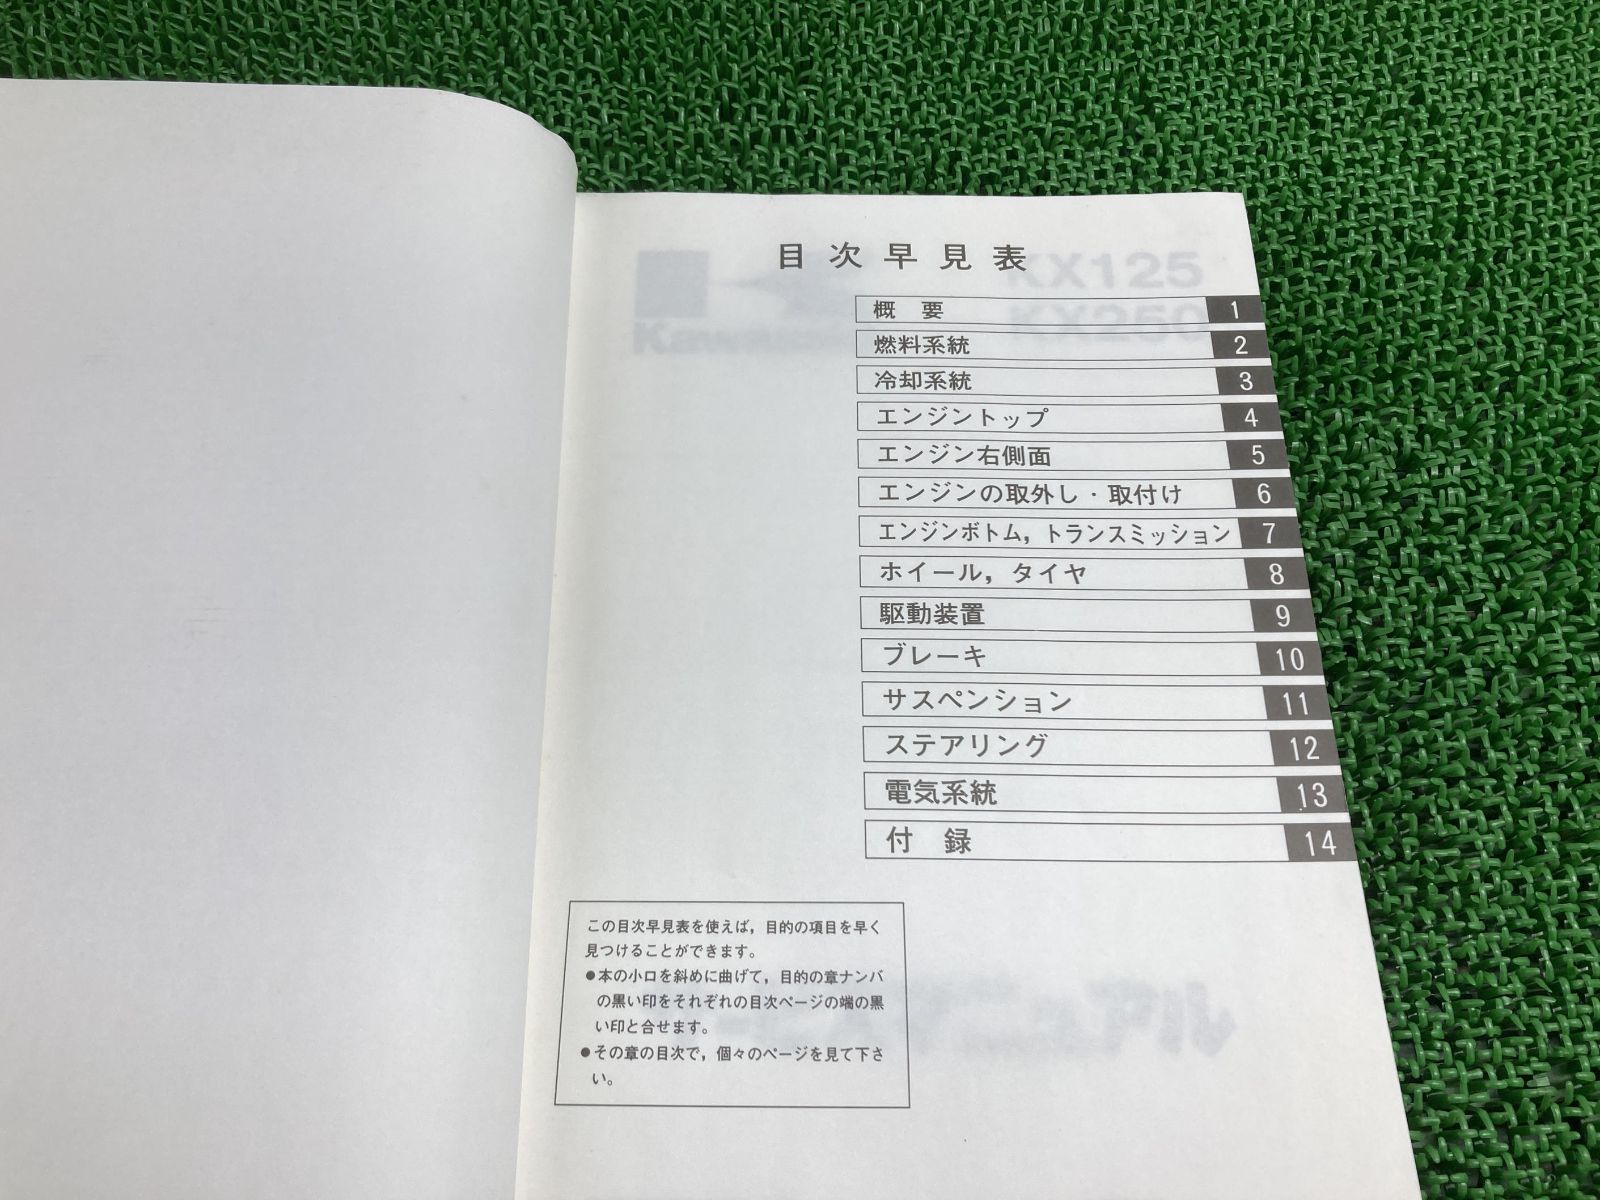 目次早見表
KX125
KX250
Kawasaki
概 要 1
燃料系統 2
冷却系統 3
エンジントップ 4
エンジン右側面 5
エンジンの取外し・取付け 6
エンジンボトム，トランスミッション 7
ホイール，タイヤ 8
駆動装置 9
ブレーキ 10
サスペンション 11
ステアリング 12
電気系統 13
付 録 14
この目次早見表を使えば，目的の項目を早く
見つけることができます。
●本の小口を斜めに曲げて，目的の章ナンバ
の黒い印をそれぞれの目次ページの端の黒
い印と合せます。
●その章の目次で，個々のページを見て下さ
い。